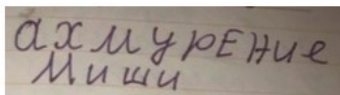 ахмурЕНие
Миши